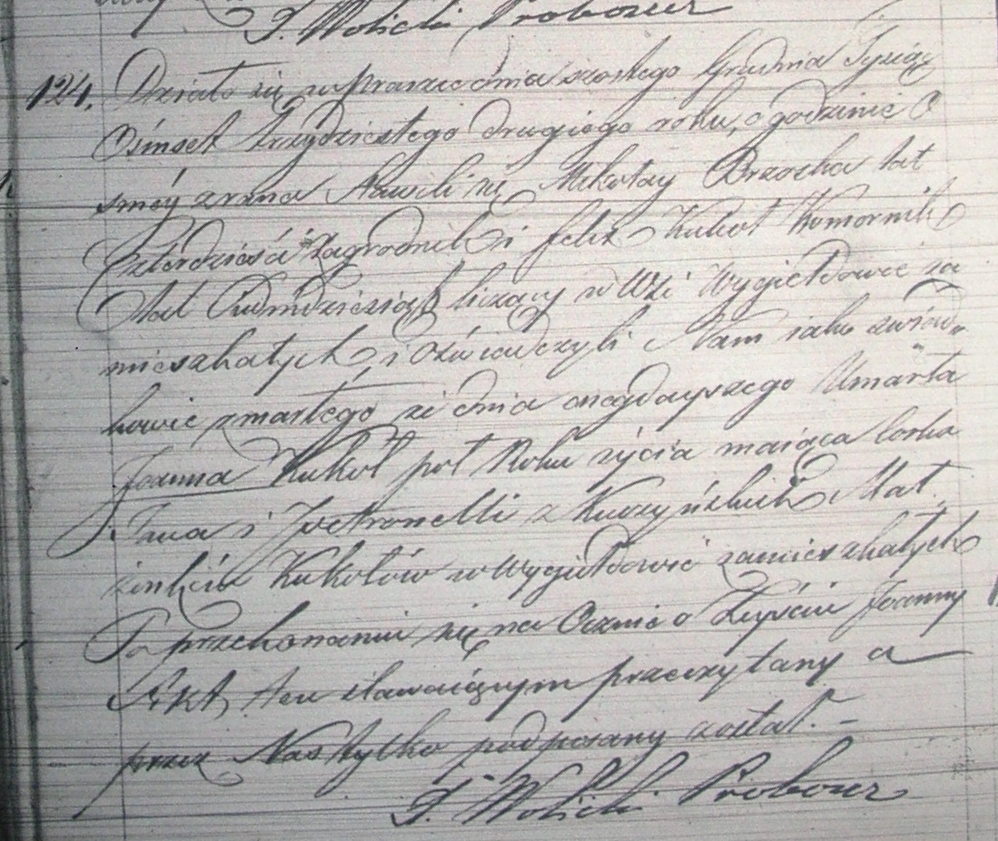 J. Wolicki Proboszcz
124. Działo się w Praszce dnia szostego Grudnia Tysiąc
Ośmset trzydziestego drugiego roku, o godzinie O
sméy zrana Stawili się Mikołay Brzozka lat
Czterdzieści Zagrodnik i Felix Kukoł Komornik
lat liczący w Wsi Wygiełdowie za
mieszkałych, i Oświadczyli Nam iako
zmarłego że dnia onegdayszego Umarła
Joanna Kukoł poł Roku życia maiąca Corka
Jana i Petronelli z Kuczyńskich Mał
żonków Kukołów w Wygiełdowie zamieszkałych
Po przekonaniu się na Ocznie o Zeyściu Joanny
Akt ten stawaiącym przeczytany a
przez Nas tylko podpisany został. –
J. Wolicki Proboszcz